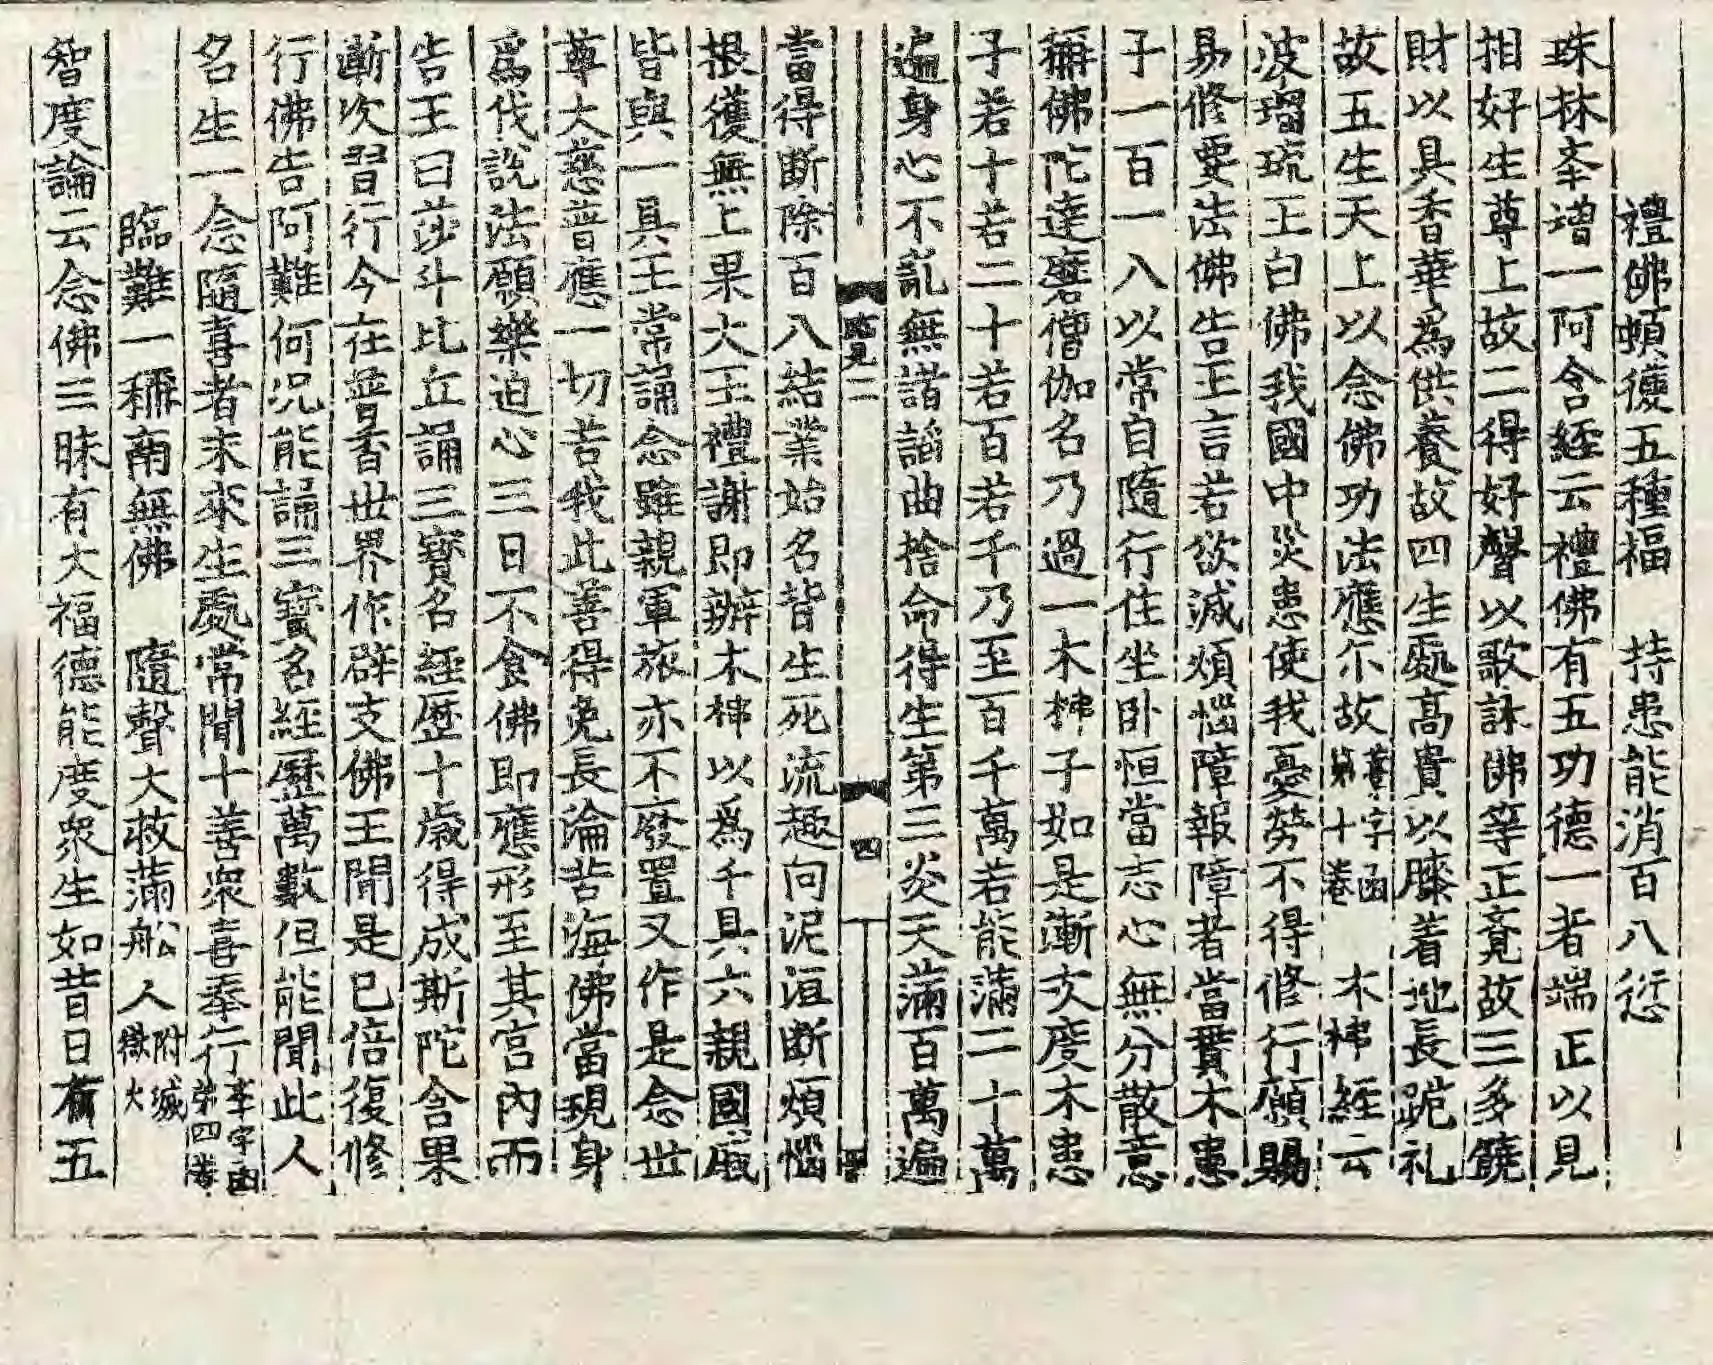 禮佛頓獲五種福　持患能消百八愆
珠林夲增一阿含経云禮佛有五功德一者端正以見
相好生尊上故二得好聲以歌詠佛等正覔故三多饒
財以具香華為供養故四生處高貴以膝着地長跪礼
故五生天上以念佛功法應尒故　字函第十卷　木槵経云
波瑠琉王白佛我國中災患使我憂勞不得修行願賜
易修要法佛告王言若欲滅煩惱障報障者當貫木患
子一百一八以常自隨行住坐卧恒當志心無分散意
稱佛陀達磨僧伽名乃過一木槵子如是漸次度木患
子若十若二十若百若千乃至百千萬若能滿二十萬
遍身心不亂無諸諂曲捨命得生第三炎天滿百萬遍
臨見二　四
當得断除百八結業始名背生死流趣向泥洹断煩惱
根獲無上果大王禮謝即辦木槵以為千具六親國戚
皆與一具王常誦念雖親軍旅亦不廢置又作是念世
尊大慈普應一切若我此善得免長淪苦海佛當現身
為我說法願樂迫心三日不食佛即應形至其宮內而
告王曰莎斗比丘誦三寶名経歷十歳得成斯陀含果
漸次習行今在普香世界作辟支佛王聞是已倍復修
行佛告阿難何况能誦三寶名経歷萬數但能聞此人
名生一念隨喜者未來生處常聞十善衆喜奉行　字函第四卷
臨難一稱南無佛　隨聲大救滿舩人　附滅獄火
智度論云念佛三昧有大福德能度衆生如昔日有五